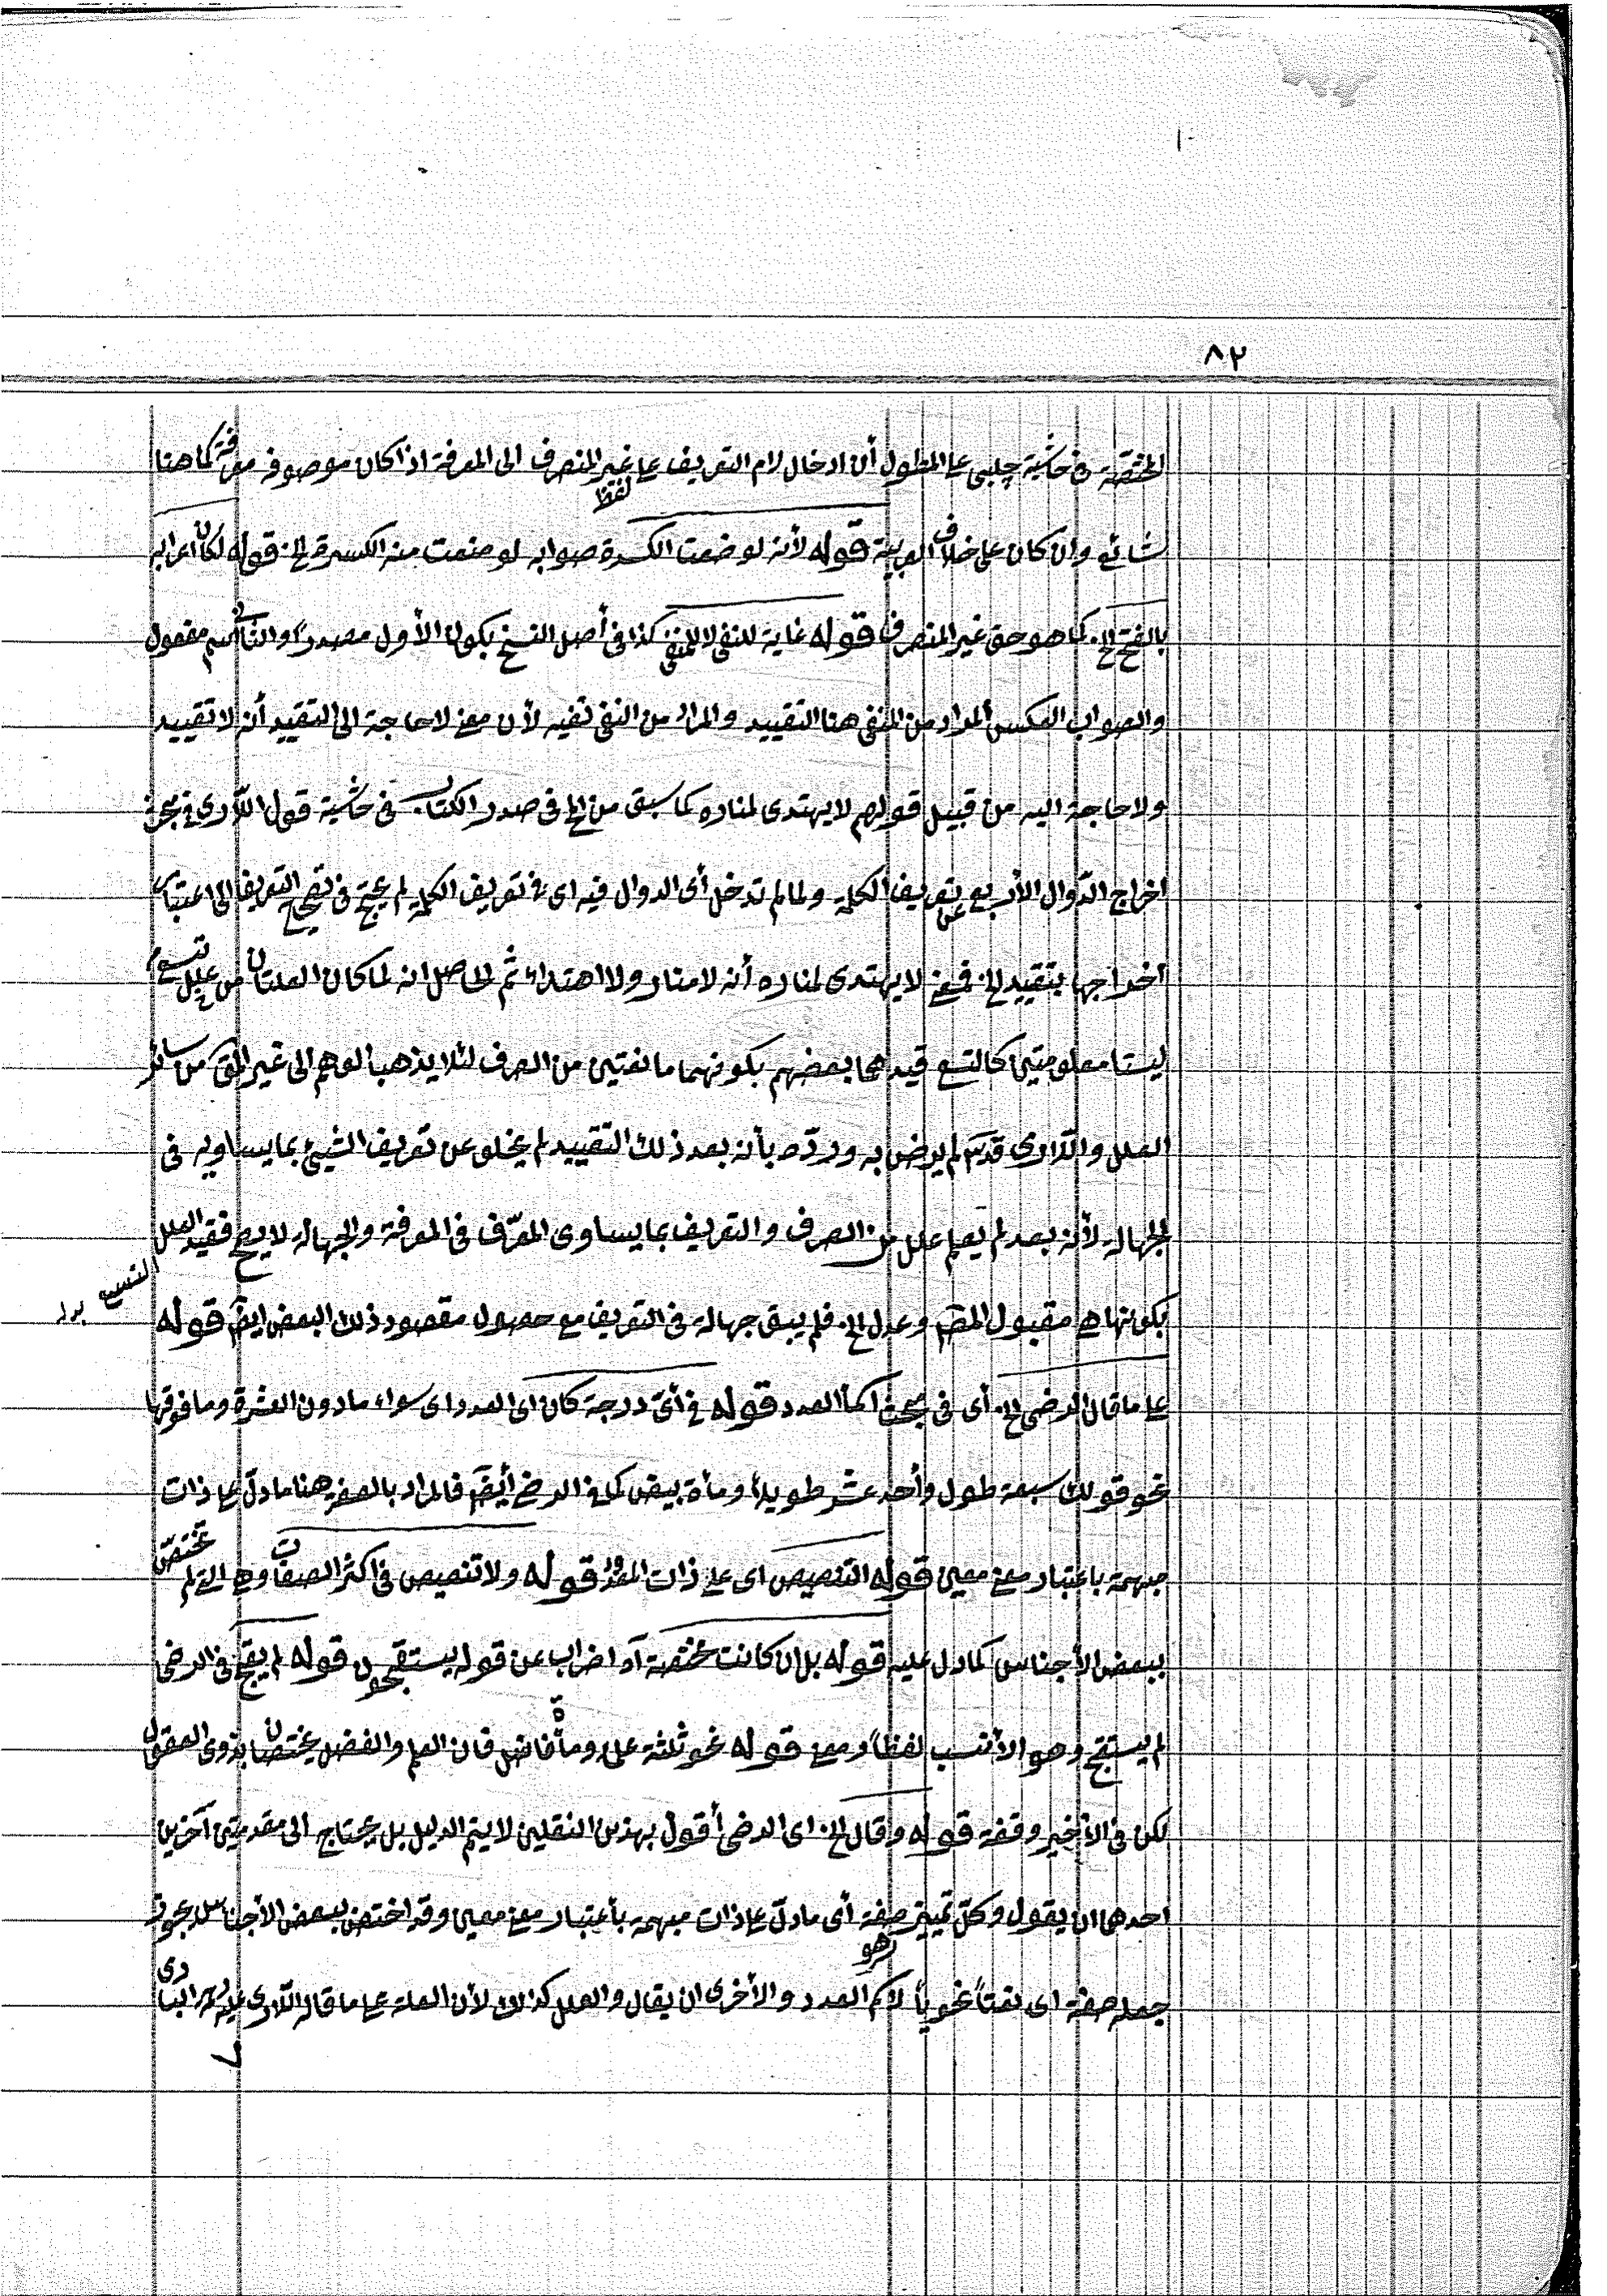 ٨٢
المختصة وفى حاشية چلبى على المطول أن ادخال لام التعريف على لفظ غير المنصرف الى المعرفة اذا كان موصوفه معرفة كما هنا
شائع وان كان على خلاف العربية قوله لأنه لو ضمت الكسرة صوابه لو منعت منه الكسرة الخ قوله لكان اعرابه
بالفتح الخ كما هو حق غير المنصرف قوله غاية للنفى لا للمنفى كذا فى أصل النسخ بكون الأول مصدرا والثانى اسم مفعول
والصواب العكس المراد من المنفى هنا التقييد والمراد من النفى نفيه لأن معنى لا حاجة الى التقييد أنه لا تقييد
ولا حاجة اليه من قبيل قولهم لا يهتدى لمناره كما سبق من الخ فى صدر الكتاب فى حاشية قول اللارى فى بحث
اخراج الدوال الأربع عن تعريف الكلمة ولما لم تدخل أى الدوال فيه اى فى تعريف الكلمة لم يحتج فى تصحيح التعريف الى اعتبار
اخراجها بتقييد الخ فمعنى لا يهتدى لمناره أنه لا منار ولا اهتداء ثم الحاصل انه لما كان العلتان من علل تسع
ليستا معلومتين كالتسع قيدهما بعضهم بكونهما مانعتين من الصرف لئلا يذهب الوهم الى غير المق من سائر
العلل واللارى قدس لم يرض به وردّه بأنه بعد ذلك التقييد لم يخلو عن تعريف الشيئ بما يساويه فى
الجهالة لأنه بعد لم يعلم علل منع الصرف والتعريف بما يساوى المعرّف فى المعرفة والجهالة لا يصح فقيد العلل
التسع بدل
بكونها هى مقبول المصَ وعدل الخ فلم يبق جهالة فى التعريف مع حصول مقصود ذلك البعض ايضَ قوله
على ما قال الرضى الخ أى فى بحث اسماء العدد قوله فى أى درجة كان اى العدد اى سواء مادون العشرة وما فوقها
نحو قولك سبعة طول وأحد عشر طويلاً ومأة بيض كما فى الرضى أيضَ فالمراد بالصفة هنا مادل على ذات
مبهمة باعتبار معنى معين قوله التنصيص اى على ذات المعدود قوله ولا تنصيص فى اكثر الصفات وهى التى لم تختص
ببعض الأجناس كما دل عليه قوله بل ان كانت مختصة آه اضراب عن قوله يستقبحون قوله لم يقبح فى الرضى
لم يستقبح وهو الأنسب لفظاً ومعنى قوله نحو ثلثة علماء ومأة فاضل فان العلم والفضل يختصان بذوى العقول
لكن فى الأخير وقفة قوله وقال الخ اى الرضى أقول بهذين النقلين لا يتم الدليل بل يحتاج الى مقدمتين آخرين
احدهما ان يقول وكل تمييز صفة أى مادل على ذات مبهمة بأعتبار معنى معين وقد اختص ببعض الأجناس يجوز
جعله صفة اى نعتاً نحوياً لاسم العدد والأخرى ان يقال والعلل كذلك لأن العلة على ما قاله اللارى هو